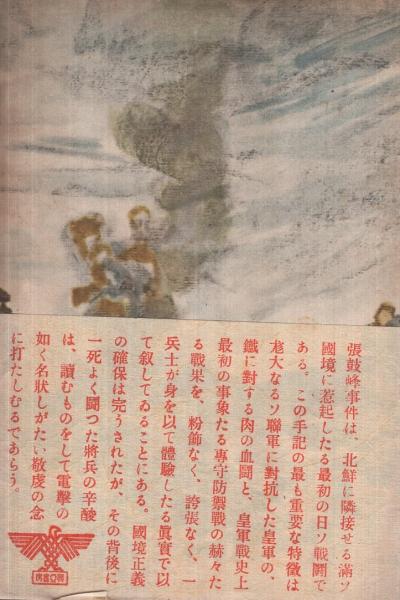 張鼓峰事件は、北鮮に隣接せる滿ソ
國境に惹起したる最初の日ソ戰鬪で
ある。この手記の最も重要な特徴は
尨大なるソ聯軍に對抗した皇軍の、
鐵に對する肉の血鬪と、皇軍戰史上
最初の事象たる專守防禦戰の赫々た
る戰果を、粉飾なく、誇張なく、一
兵士が身を以て體驗したる眞實で以
て叙してゐることにある。國境正義
の確保は完うされたが、その背後に
一死よく鬪つた將兵の辛酸
は、讀むものをして電擊の
如く名狀しがたい敬虔の念
に打たしむるであらう。